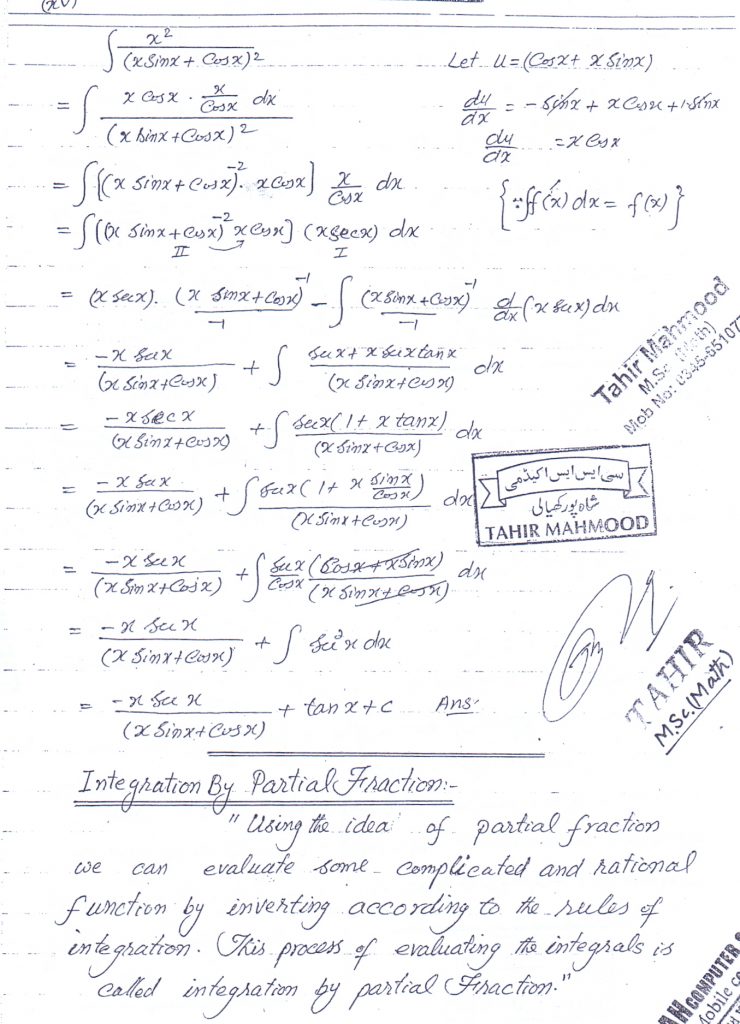 (xv)
∫ x² / (x Sinx + Cosx)2
Let u = (Cosx + x Sinx)
= ∫ x Cosx · x/Cosx dx / (x Sinx + Cosx)2
du/dx = - Sinx + x Cosx + 1·Sinx
du/dx = x Cosx
= ∫ [(x Sinx + Cosx)⁻² · x Cosx] x/Cosx dx
{∵ ∫f′(x) dx = f(x)}
= ∫ [(x Sinx + Cosx)⁻² x Cosx] (x Secx) dx
II I
= (x Secx) · (x Sinx + Cosx)⁻¹/-1 - ∫ (x Sinx + Cosx)⁻¹/-1 d/dx (x Secx) dx
= -x Secx / (x Sinx + Cosx) + ∫ Secx + x Secx tanx / (x Sinx + Cosx) dx
= -x Sec x / (x Sinx + Cosx) + ∫ Secx (1 + x tanx) / (x Sinx + Cosx) dx
= -x Secx / (x Sinx + Cosx) + ∫ Secx (1 + x Sinx/Cosx) / (x Sinx + Cosx) dx
= -x Sec x / (x Sinx + Cosx) + ∫ Sec x/Cosx (Cosx + x Sinx) / (x Sinx + Cosx) dx
= -x Sec x / (x Sinx + Cosx) + ∫ Sec²x dx
= -x Sec x / (x Sinx + Cosx) + tan x + c Ans·
Tahir Mahmood
M.Sc (Math)
Mob No: 0345-65107
سی ایس ایس اکیڈمی
شاہ پور کھیالی
TAHIR MAHMOOD
TAHIR
M.Sc.(Math)
Integration By Partial Fraction:-
"Using the idea of partial fraction
we can evaluate some complicated and rational
function by inverting according to the rules of
integration. This process of evaluating the integrals is
called integration by partial Fraction."
COMPUTER